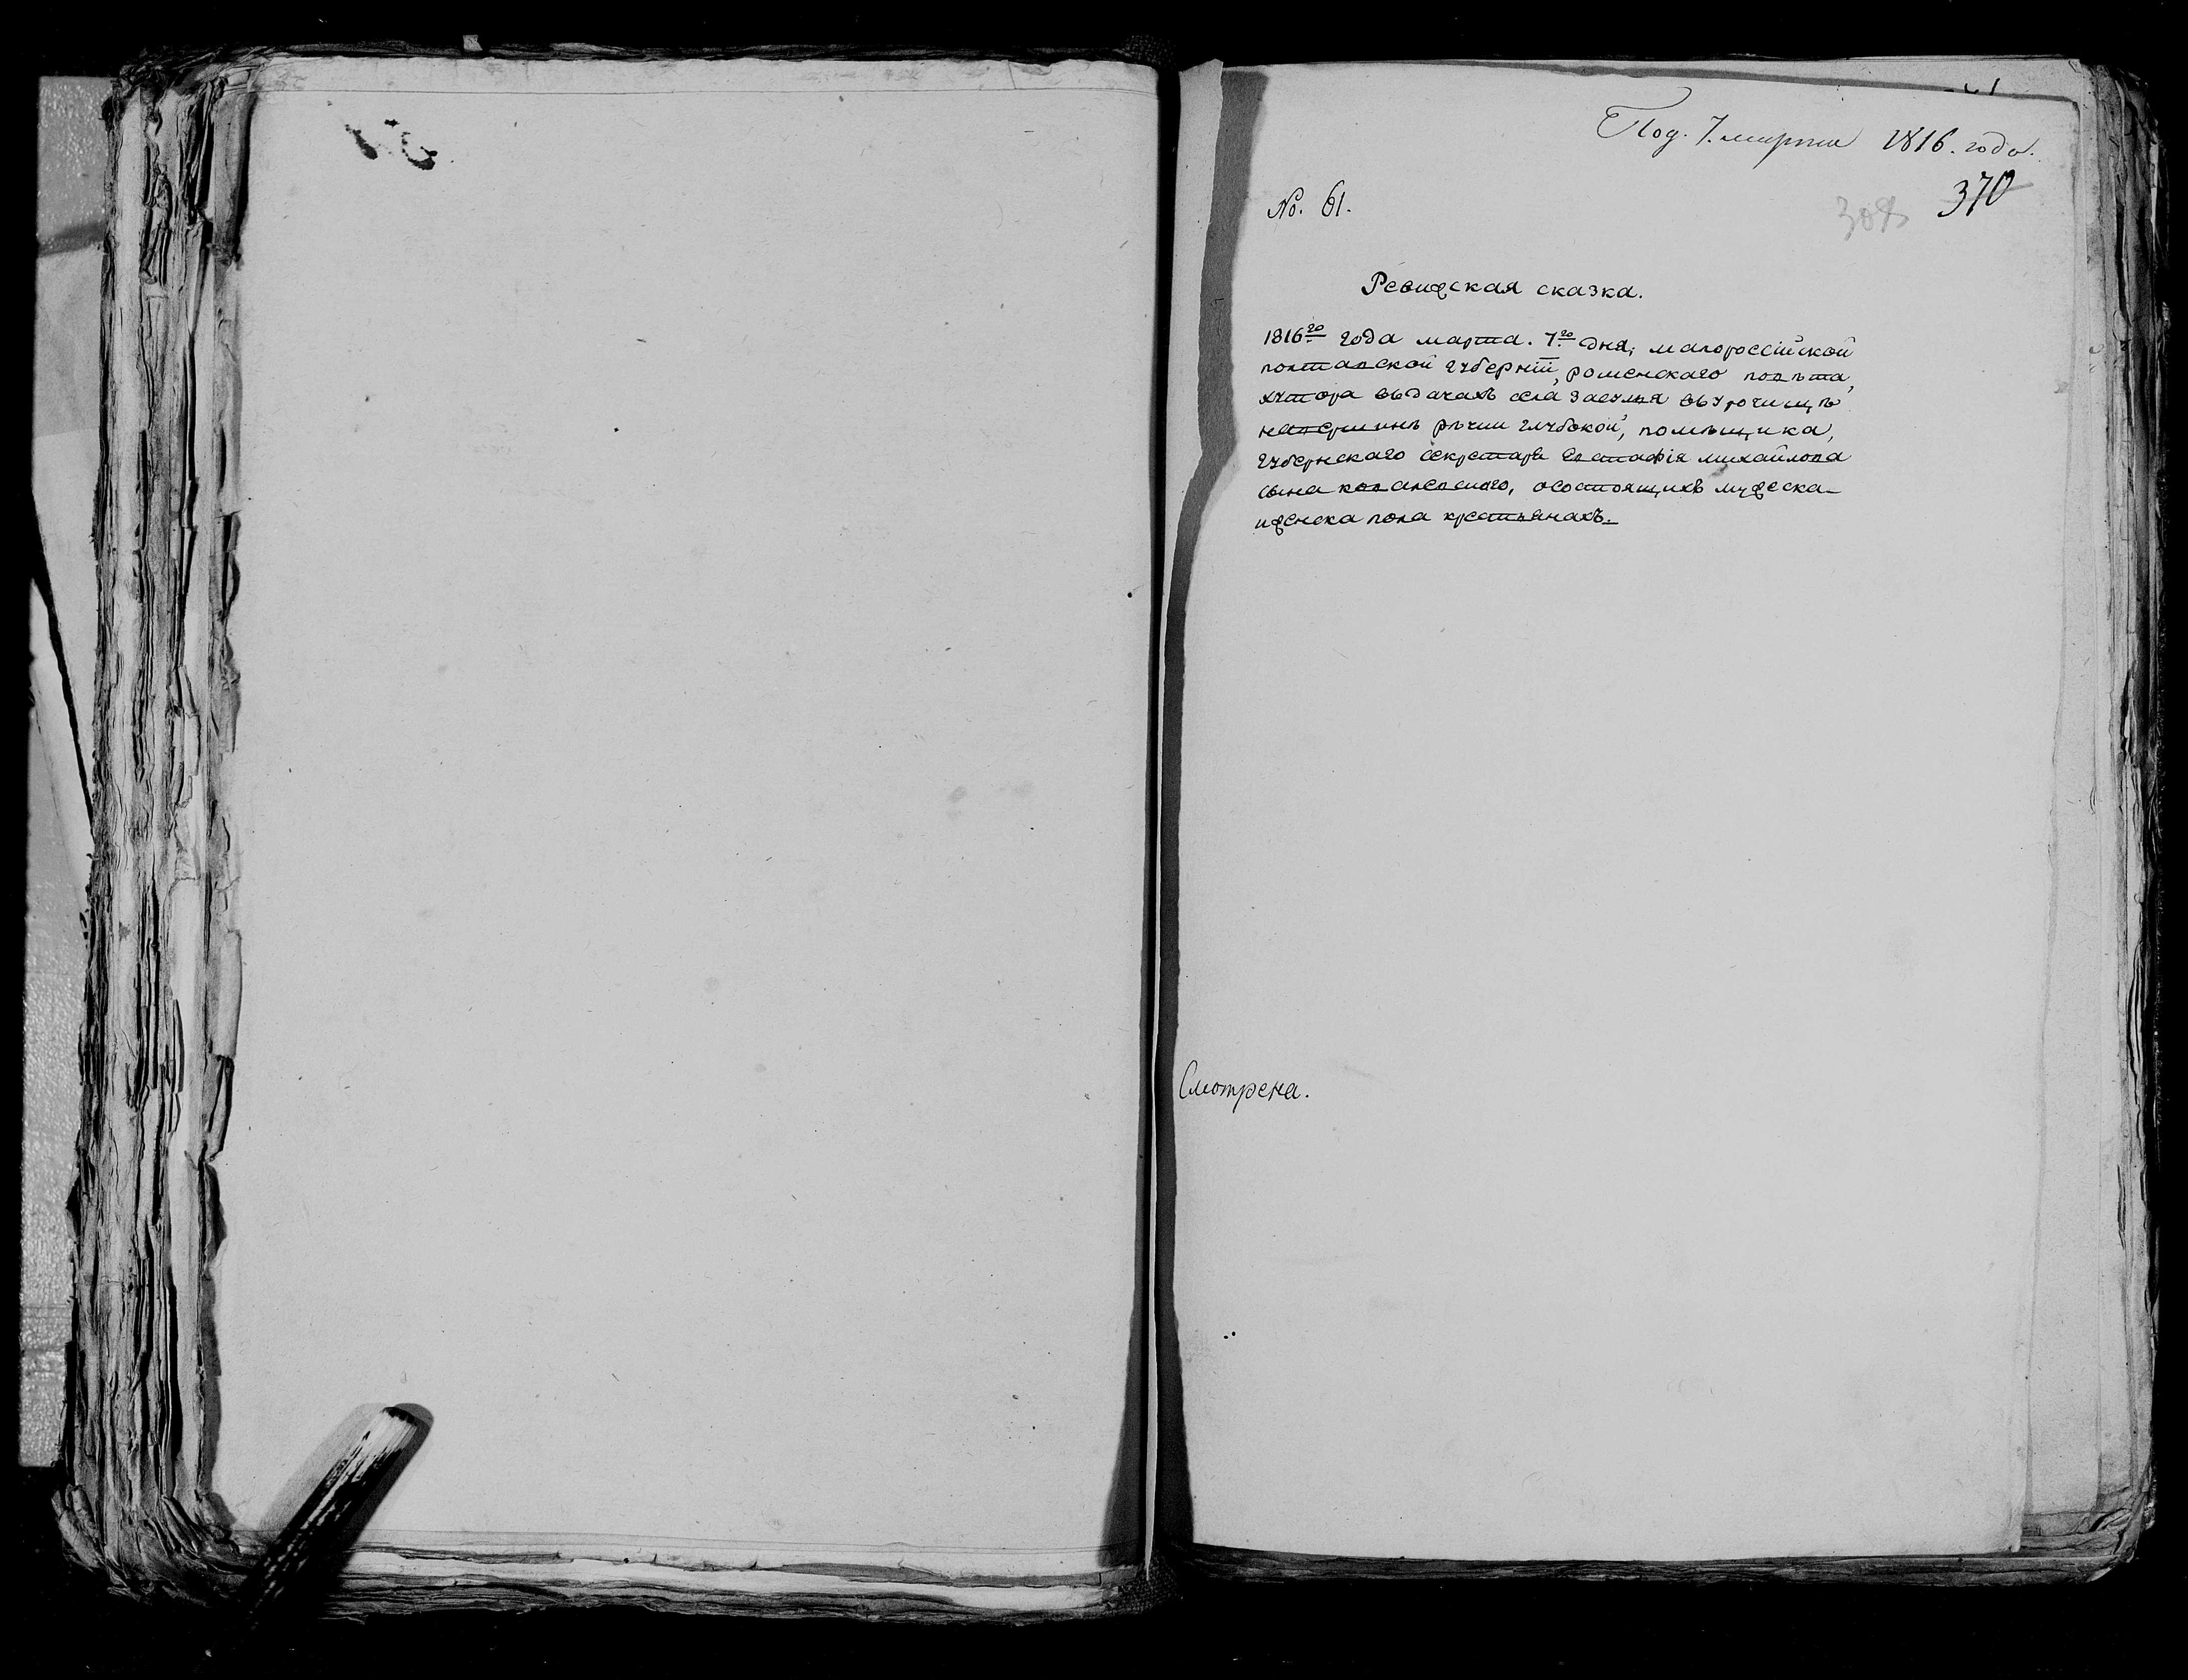 Под. 7. марта 1816. года.
370
No. 61.
308
Ревижская сказка.
1816го года марта. 7го дня, малороссійской
полтавской губерніи, роменскаго повѣта,
хутора вьдачахъ села засулья вьурочищѣ
навершинѣ рѣчки глубокой, помѣщика,
губернскаго секретаря Евстафія михайлова
сына осостоящихъ мужеска-
иженска пола крестьянахъ.
Смотрена.